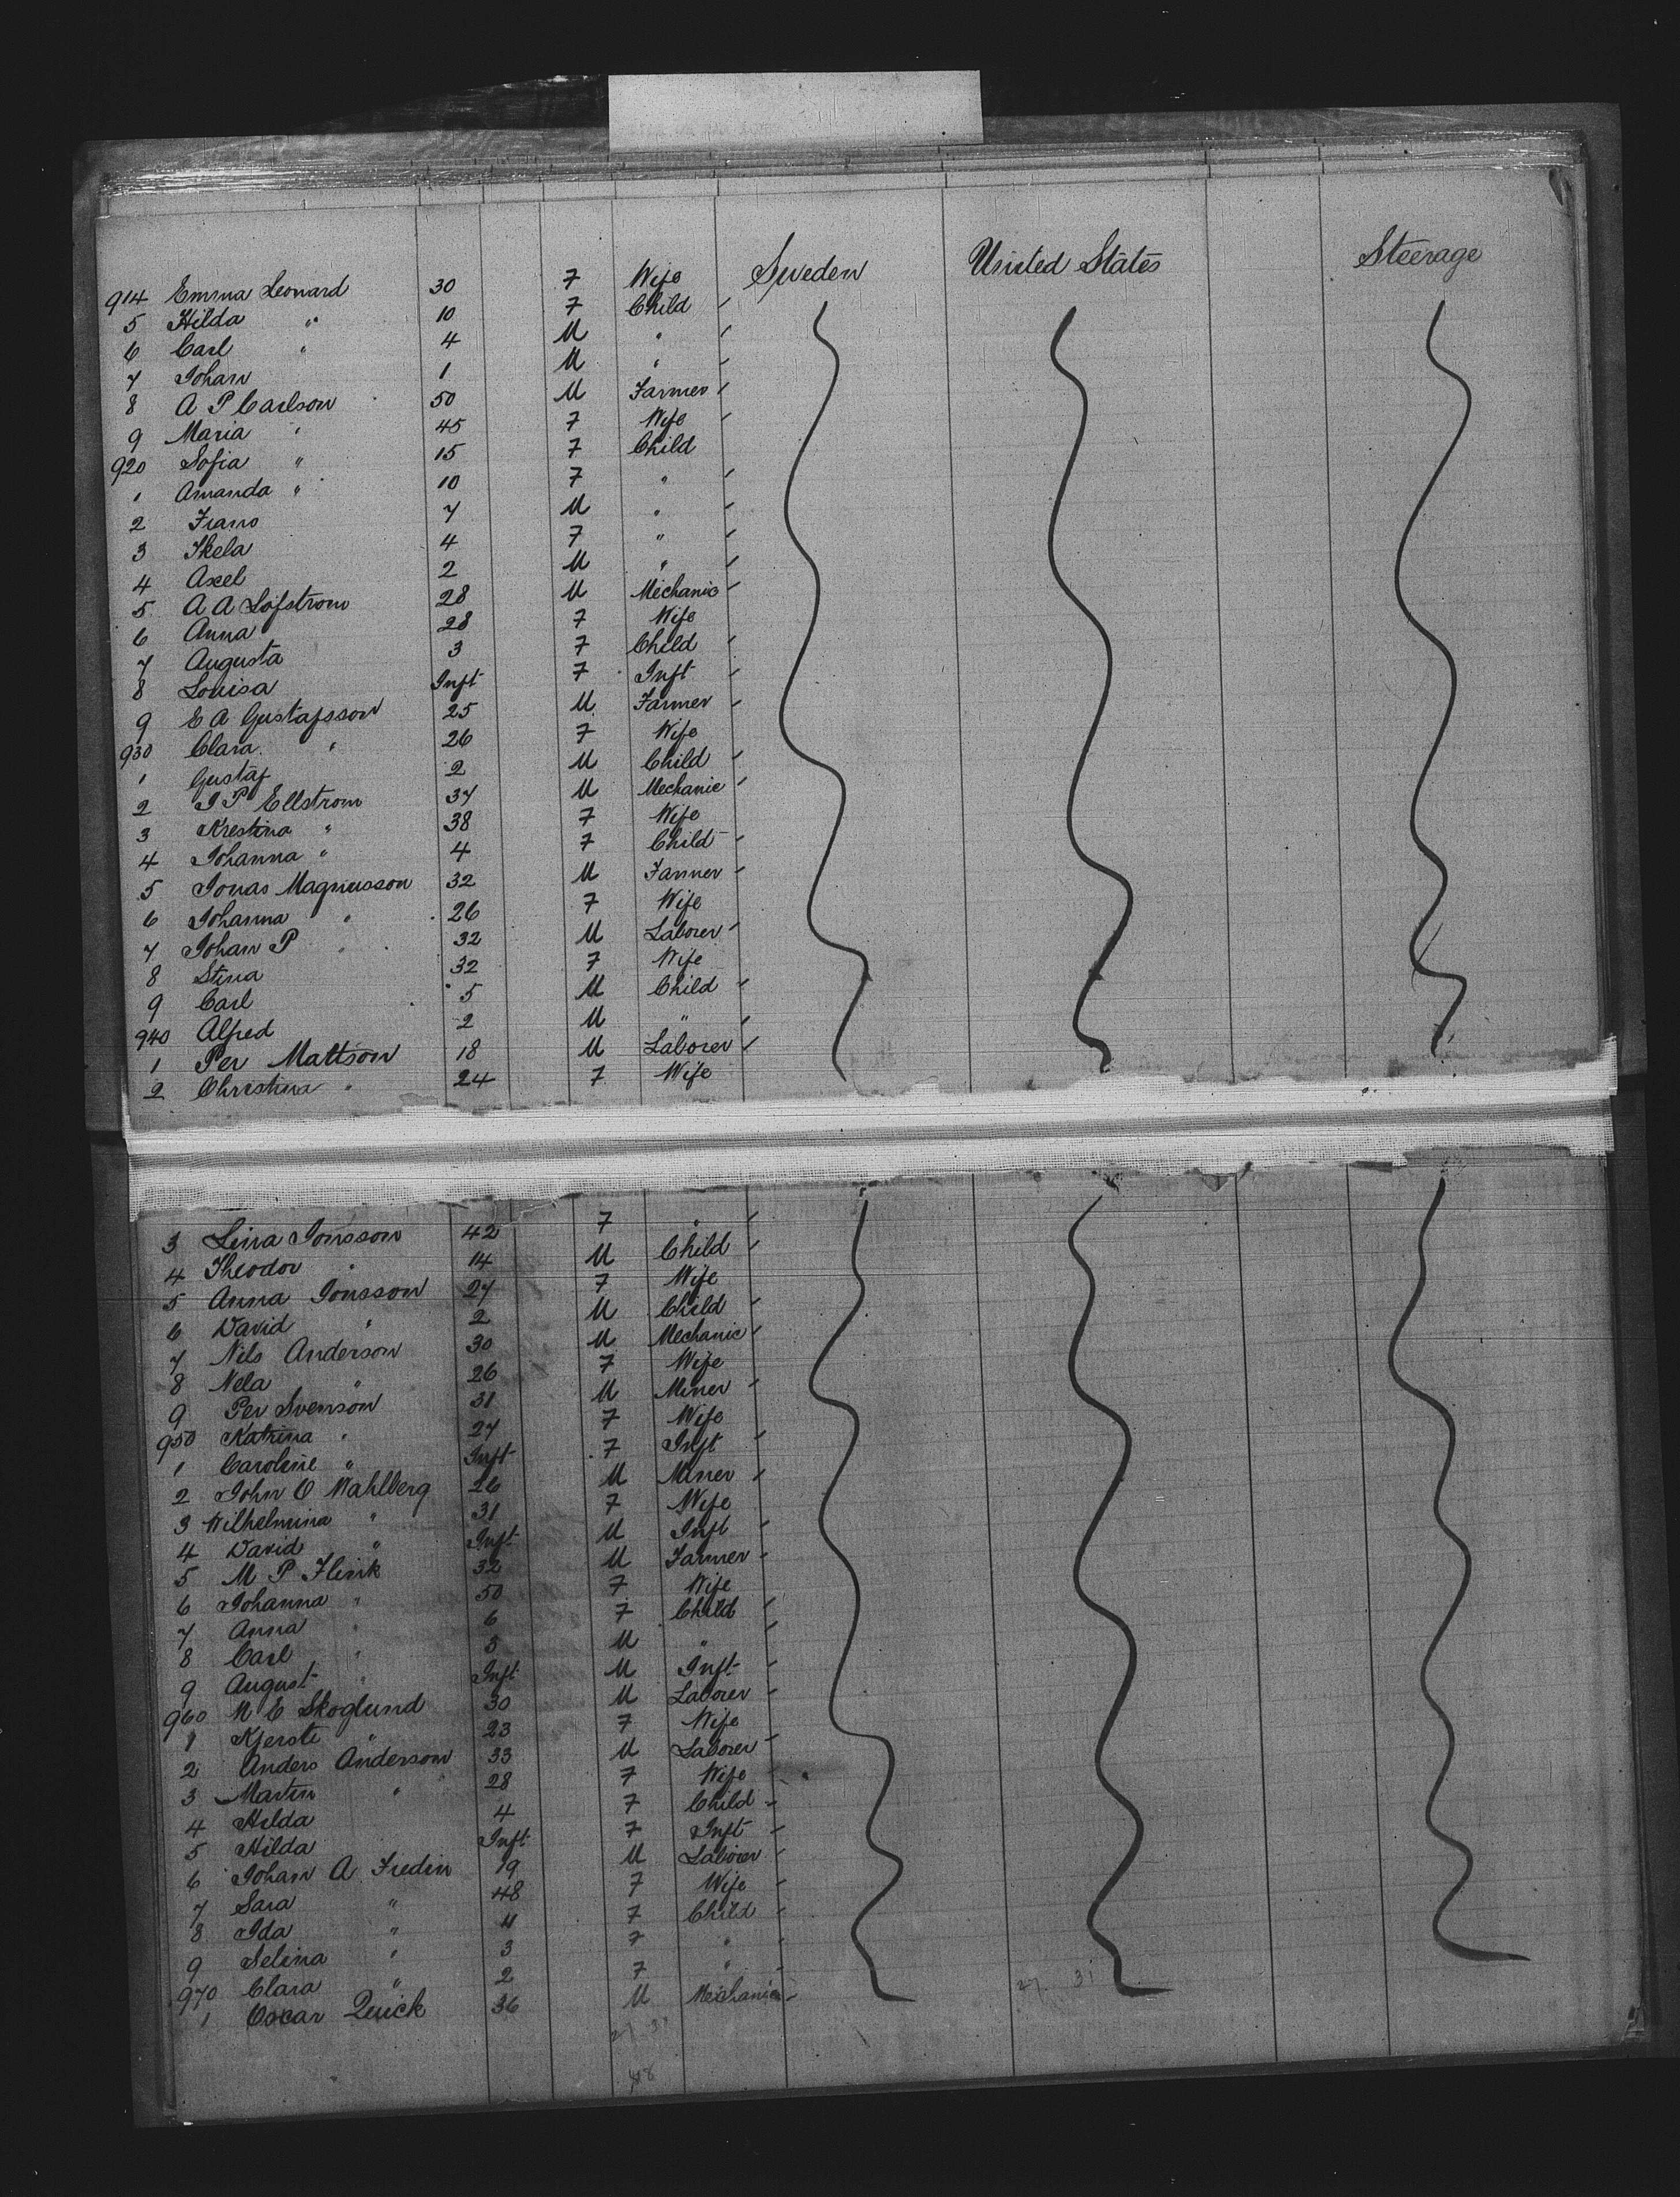 914 Emma Leonard 30 F Wife Sweden United States Steerage
5 Hilda " 10 F Child
6 Carl " 4 M "
7 Johan 1 M "
8 A P Carlson 50 M Farmer
9 Maria " 45 F Wife
920 Sofia " 15 F Child
1 Amanda " 10 F "
2 Frans 7 M "
3 Thela 4 F "
4 Axel 2 M "
5 A A Lofstrom 28 M Mechanic
6 Anna 28 F Wife
7 Augusta 3 F Child
8 Louisa Inft F Inft
9 E A Gustafsson 25 M Farmer
930 Clara " 26 F Wife
1 Gustaf 2 M Child
2 J P Ellstrom 37 M Mechanic
3 Krestina " 38 F Wife
4 Johanna " 4 F Child
5 Jonas Magnusson 32 M Farmer
6 Johanna " 26 F Wife
7 Johan P " 32 M Laborer
8 Stina 32 F Wife
9 Carl 5 M Child
940 Alfred 2 M "
1 Per Mattson 18 M Laborer
2 Christina " 24 F Wife
3 Lina Jonsson 42 F "
4 Theodor " 14 M Child
5 Anna Jonsson 27 F Wife
6 David " 2 M Child
7 Nils Anderson 30 M Mechanic
8 Nela " 26 F Wife
9 Per Svenson 31 M Miner
950 Katrina " 27 F Wife
1 Caroline " Inft F Inft
2 John O Wahlberg 26 M Miner
3 Wilhelmina " 31 F Wife
4 David " Inft M Inft
5 M P Flink 32 M Farmer
6 Johanna " 50 F Wife
7 Anna " 6 F Child
8 Carl " M "
9 August " Inft M Inft
960 M E Skoglund 30 M Laborer
1 Kjersti " 23 F Wife
2 Anders Anderson 33 M Laborer
3 Martin " 28 F Wife
4 Hilda 4 F Child
5 Hilda Inft F Inft
6 Johan A Fredin 19 M Laborer
7 Sara " 48 F Wife
8 Ida " 11 F Child
9 Selina " 3 F "
970 Clara " 2 F "
1 Oscar Quick 36 M Mechanic
27 31
27 31
48